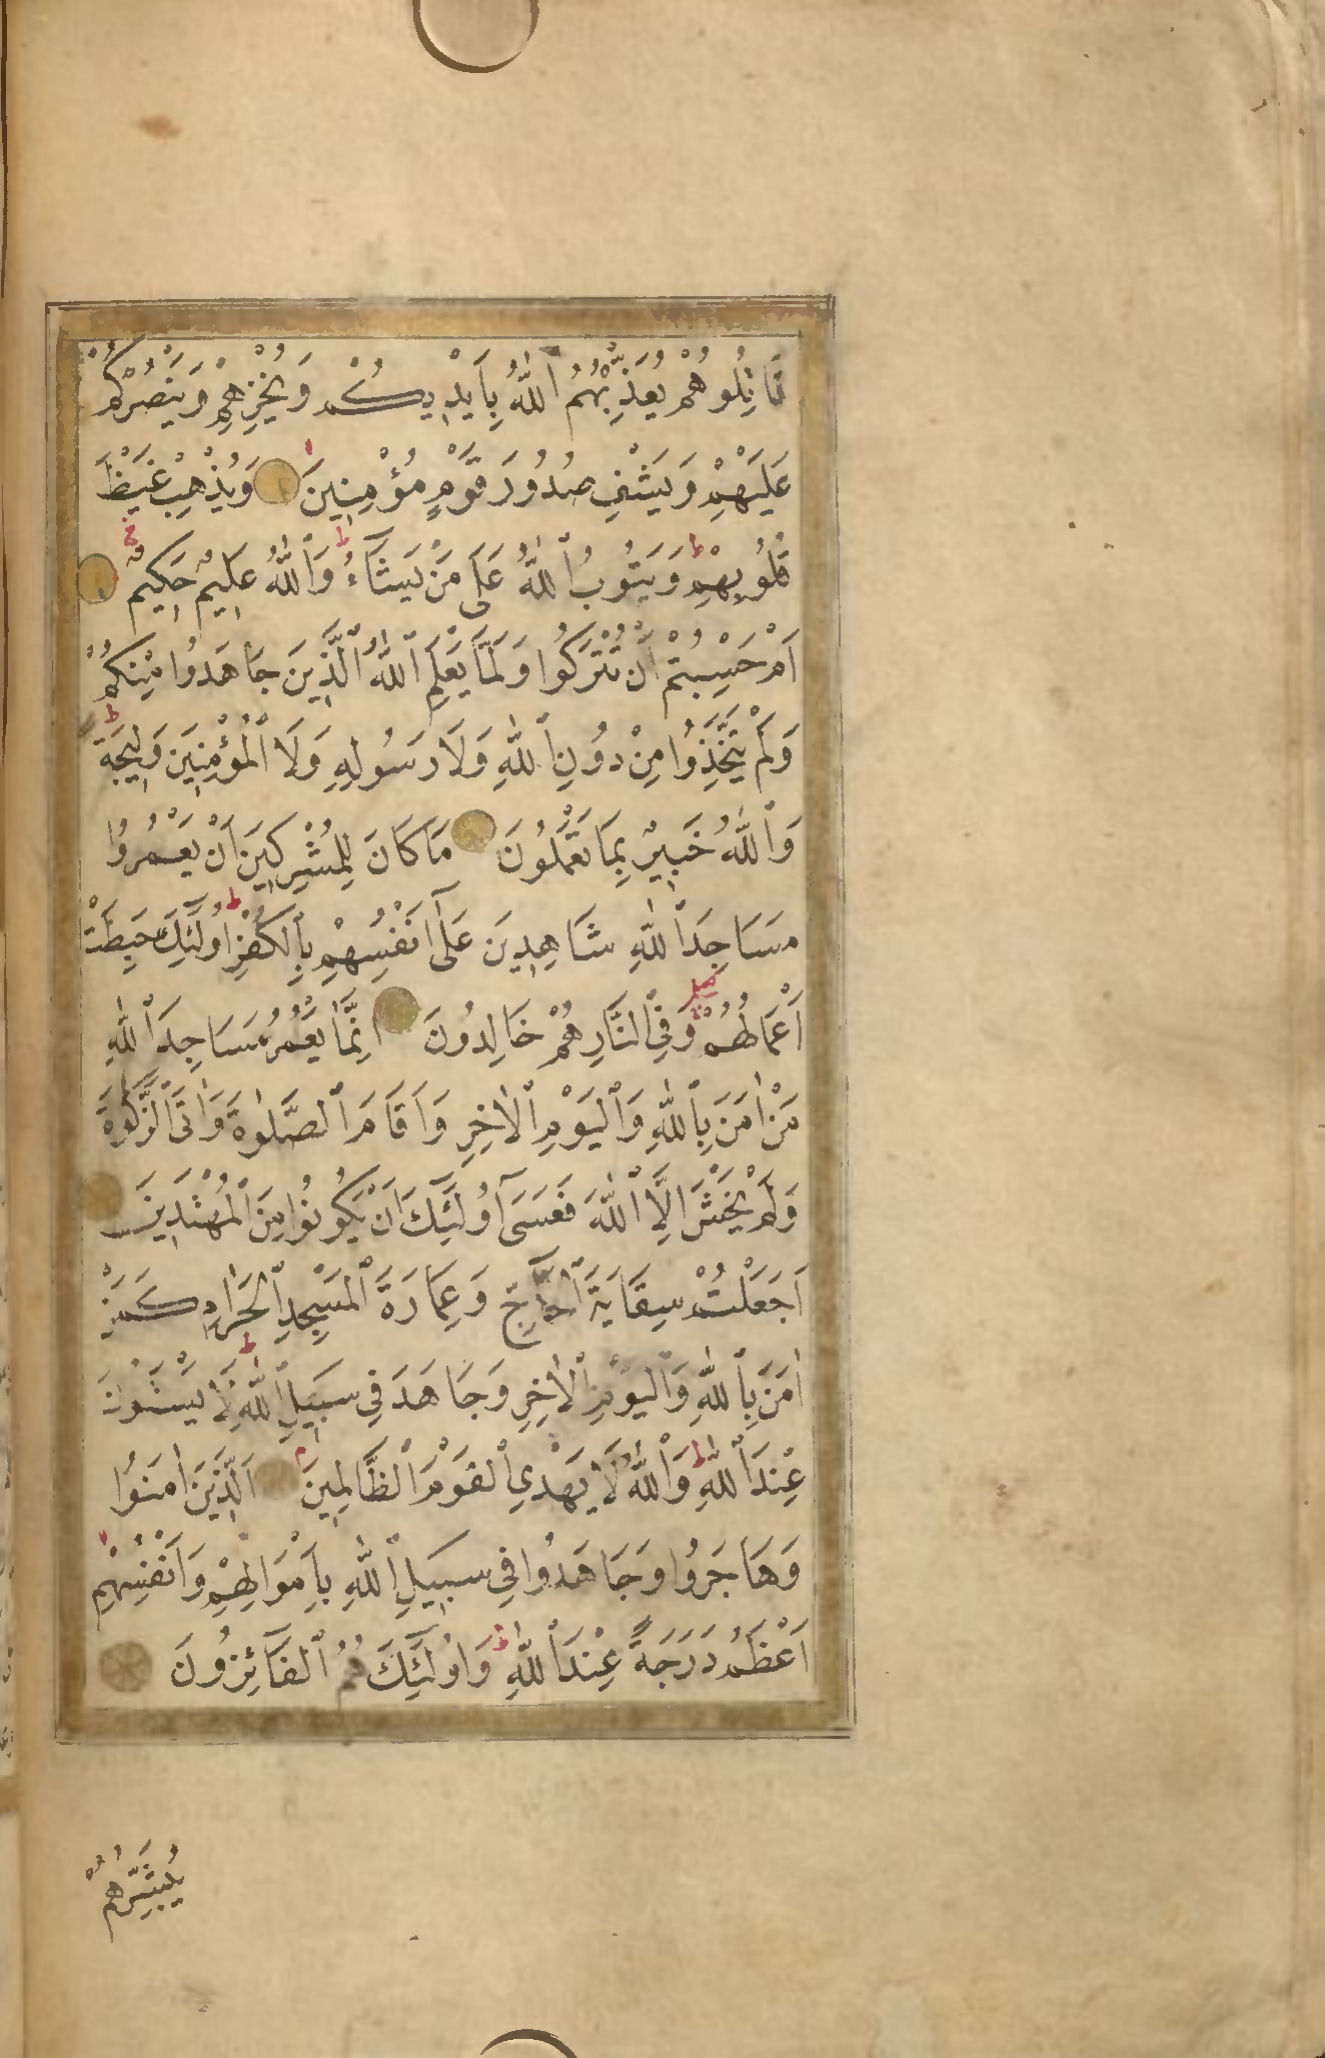 قَاتِلُوهُمْ يُعَذِّبْهُمُ ٱللّٰهُ بِاَيْدِيكُمْ وَيُخْزِهِمْ وَيَنْصُرْكُمْ
عَلَيْهِمْ وَيَشْفِ صُدُورَ قَوْمٍ مُؤْمِنِينَ وَيُذْهِبْ غَيْظَ
قُلُوبِهِمْ ط وَيَتُوبُ ٱللّٰهُ عَلٰى مَنْ يَشَآءُ ط وَٱللّٰهُ عَلِيمٌ حَكِيمٌ
اَمْ حَسِبْتُمْ اَنْ تُتْرَكُوا وَلَمَّا يَعْلَمِ ٱللّٰهُ ٱلَّذِينَ جَاهَدُوا مِنْكُمْ
وَلَمْ يَتَّخِذُوا مِنْ دُونِ ٱللّٰهِ وَلَا رَسُولِهِ وَلَا ٱلْمُؤْمِنِينَ وَلِيجَةً ط
وَٱللّٰهُ خَبِيرٌ بِمَا تَعْمَلُونَ مَا كَانَ لِلْمُشْرِكِينَ اَنْ يَعْمُرُوا
مَسَاجِدَ ٱللّٰهِ شَاهِدِينَ عَلٰٓى اَنْفُسِهِمْ بِٱلْكُفْرِ ط اُولٰٓئِكَ حَبِطَتْ
اَعْمَالُهُمْ وَفِي ٱلنَّارِ هُمْ خَالِدُونَ اِنَّمَا يَعْمُرُ مَسَاجِدَ ٱللّٰهِ
مَنْ اٰمَنَ بِٱللّٰهِ وَٱلْيَوْمِ ٱلْاٰخِرِ وَاَقَامَ ٱلصَّلٰوةَ وَاٰتَى ٱلزَّكٰوةَ
وَلَمْ يَخْشَ اِلَّا ٱللّٰهَ فَعَسٰٓى اُولٰٓئِكَ اَنْ يَكُونُوا مِنَ ٱلْمُهْتَدِينَ
اَجَعَلْتُمْ سِقَايَةَ ٱلْحَآجِّ وَعِمَارَةَ ٱلْمَسْجِدِ ٱلْحَرَامِ كَمَنْ
اٰمَنَ بِٱللّٰهِ وَٱلْيَوْمِ ٱلْاٰخِرِ وَجَاهَدَ فِي سَبِيلِ ٱللّٰهِ ط لَا يَسْتَوُنَ
عِنْدَ ٱللّٰهِ ط وَٱللّٰهُ لَا يَهْدِي ٱلْقَوْمَ ٱلظَّالِمِينَ م اَلَّذِينَ اٰمَنُوا
وَهَاجَرُوا وَجَاهَدُوا فِي سَبِيلِ ٱللّٰهِ بِاَمْوَالِهِمْ وَاَنْفُسِهِمْ
اَعْظَمُ دَرَجَةً عِنْدَ ٱللّٰهِ ط وَاُولٰٓئِكَ هُمُ ٱلْفَآئِزُونَ
يُبَشِّرُهُمْ